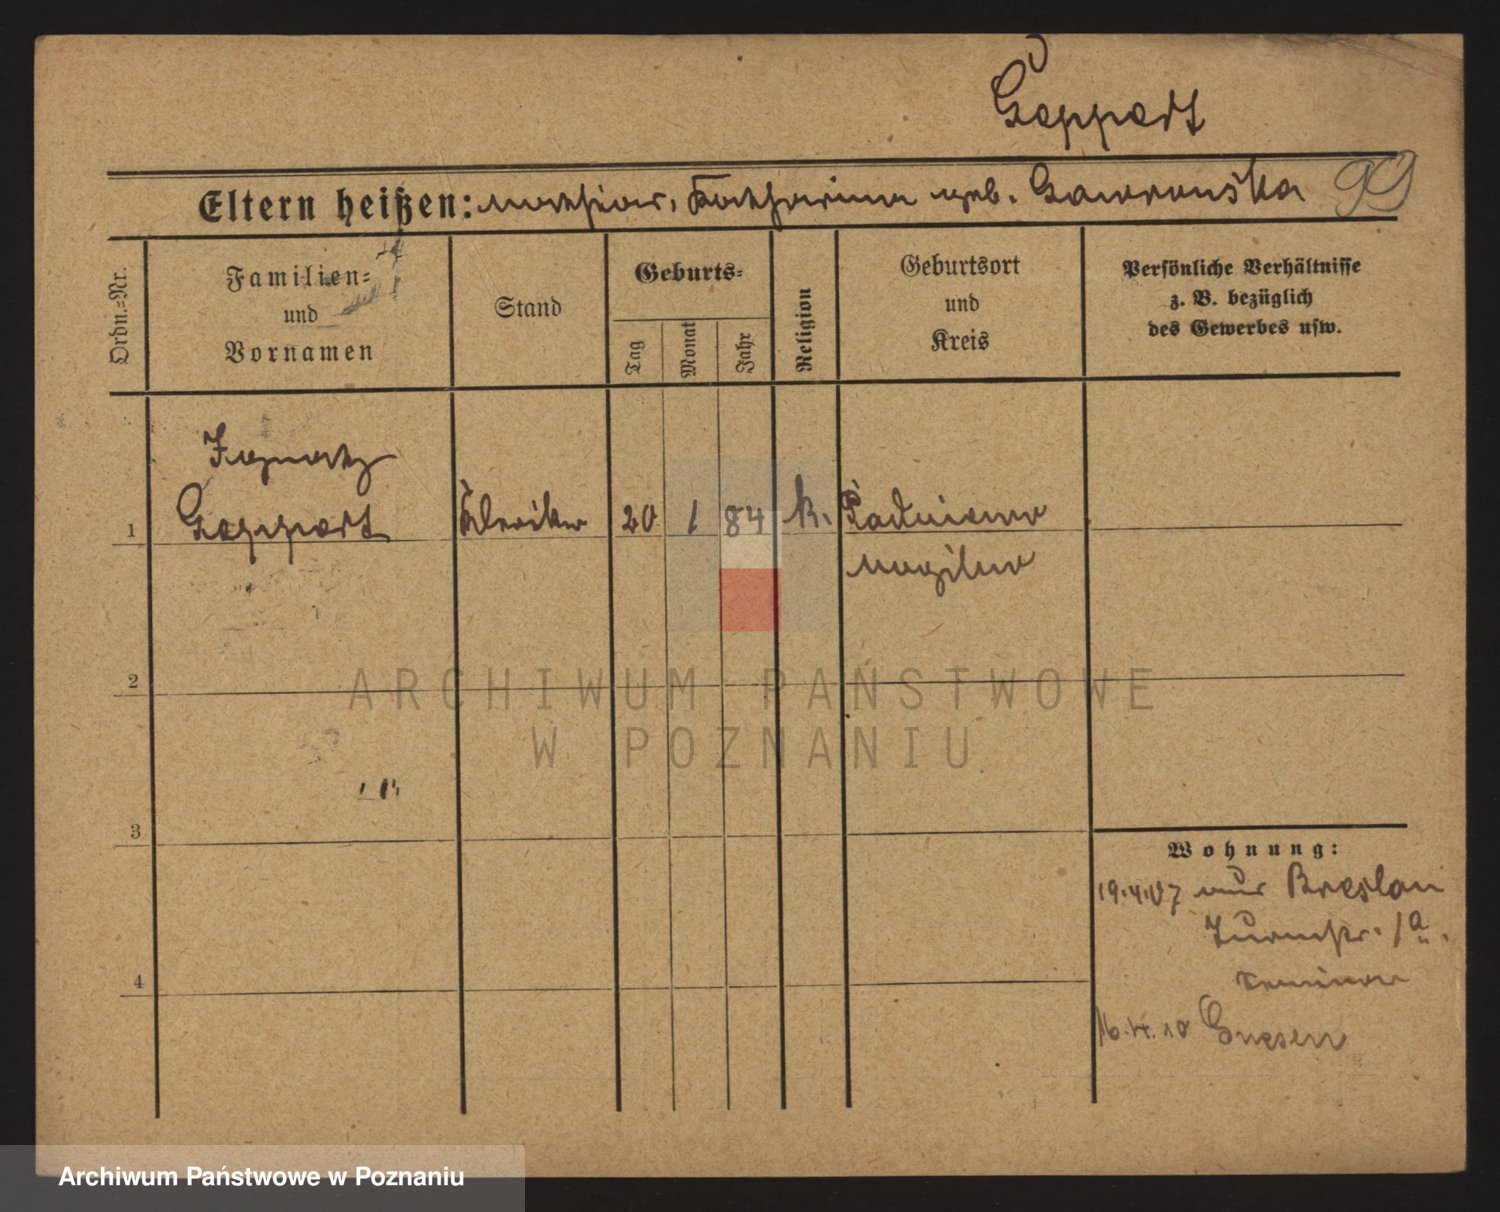 Geppert
Eltern heißen: Mathias, Katharina geb. Gawronska 99
Ordn.-Nr.
Familien-
und
Vornamen
Stand
Geburts-
Tag
Monat
Jahr
Religion
Geburtsort
und
Kreis
Persönliche Verhältnisse
z. B. bezüglich
des Gewerbes usw.
Ignatz
1 Geppert Kleriker 20 1 84 k. Padniewo
Mogilno
2
3
4
Wohnung:
19.4.07 aus Breslau
Turmstr. 1a
Seminar
16.4.10 Gnesen
ARCHIWUM PAŃSTWOWE
W POZNANIU
Archiwum Państwowe w Poznaniu